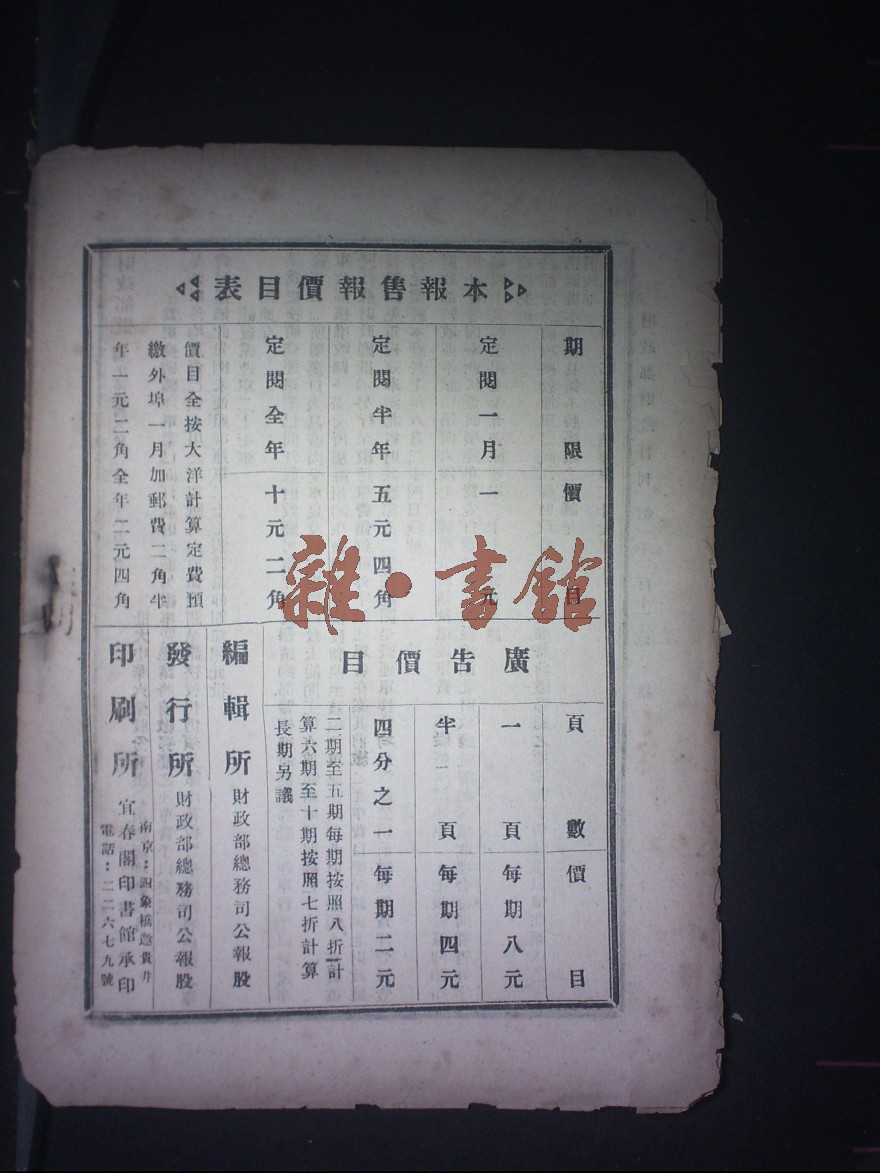 本報售報價目表
期限價目
定閱一月一元
定閱半年五元四角
定閱全年十元二角
價目全按大洋計算定費預
繳外埠一月加郵費二角半
年一元二角全年二元四角
雜·書館
廣告價目
頁數價目
一頁每期八元
半頁每期四元
四分之一每期二元
二期至五期每期按照八折計
算六期至十期按照七折計算
長期另議
編輯所 財政部總務司公報股
發行所 財政部總務司公報股
印刷所 宜春閣印書館承印
南京：四象橋邀貴井
電話：二二六七九號